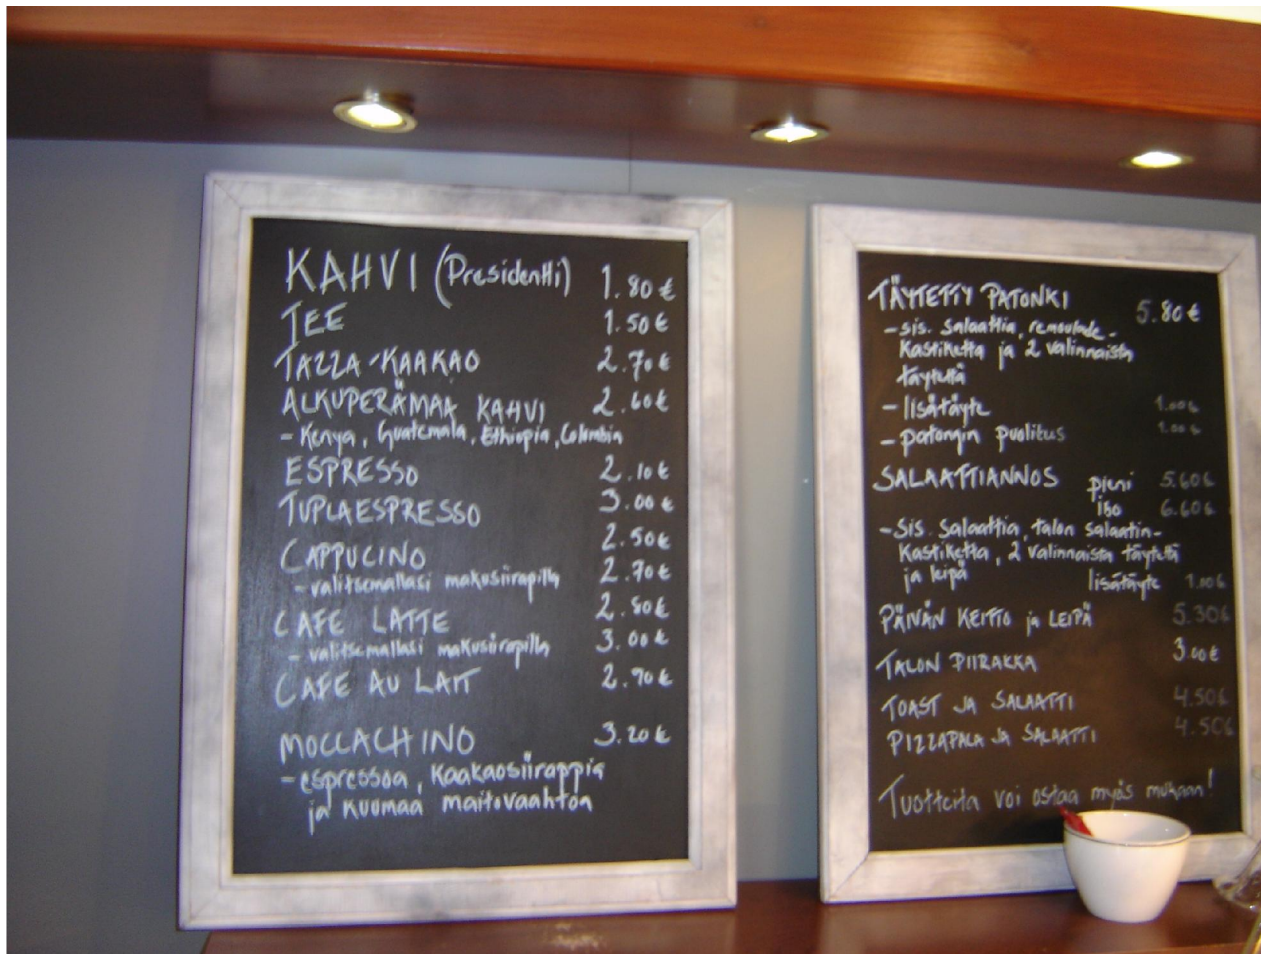 KAHVI (Presidentti) 1.80€
TEE 1.50€
TAZZA-KAAKAO 2.70€
ALKUPERÄMAA KAHVI 2.60€
- Kenya, Guatemala, Ethiopia, Colombia
ESPRESSO 2.10€
TUPLAESPRESSO 3.00€
CAPPUCINO 2.50€
- valitsemallasi makusiirapilla 2.70€
CAFE LATTE 2.80€
- valitsemallasi makusiirapilla 3.00€
CAFE AU LAIT 2.70€
MOCCACHINO 3.20€
- espressoa, kaakaosiirappia
ja kuumaa maitovaahtoa
TÄYTETTY PATONKI 5.80€
- sis. salaattia, remoulade-
kastiketta ja 2 valinnaista
täytettä
- lisätäyte 1.00€
- patongin puolitus 1.00€
SALAATTIANNOS pieni 5.60€
iso 6.60€
- sis. salaattia, talon salaatin-
kastiketta, 2 valinnaista täytettä
ja leipä lisätäyte 1.00€
PÄIVÄN KEITTO ja LEIPÄ 5.30€
TALON PIIRAKKA 3.00€
TOAST JA SALAATTI 4.50€
PIZZAPALA JA SALAATTI 4.50€
Tuotteita voi ostaa myös mukaan!